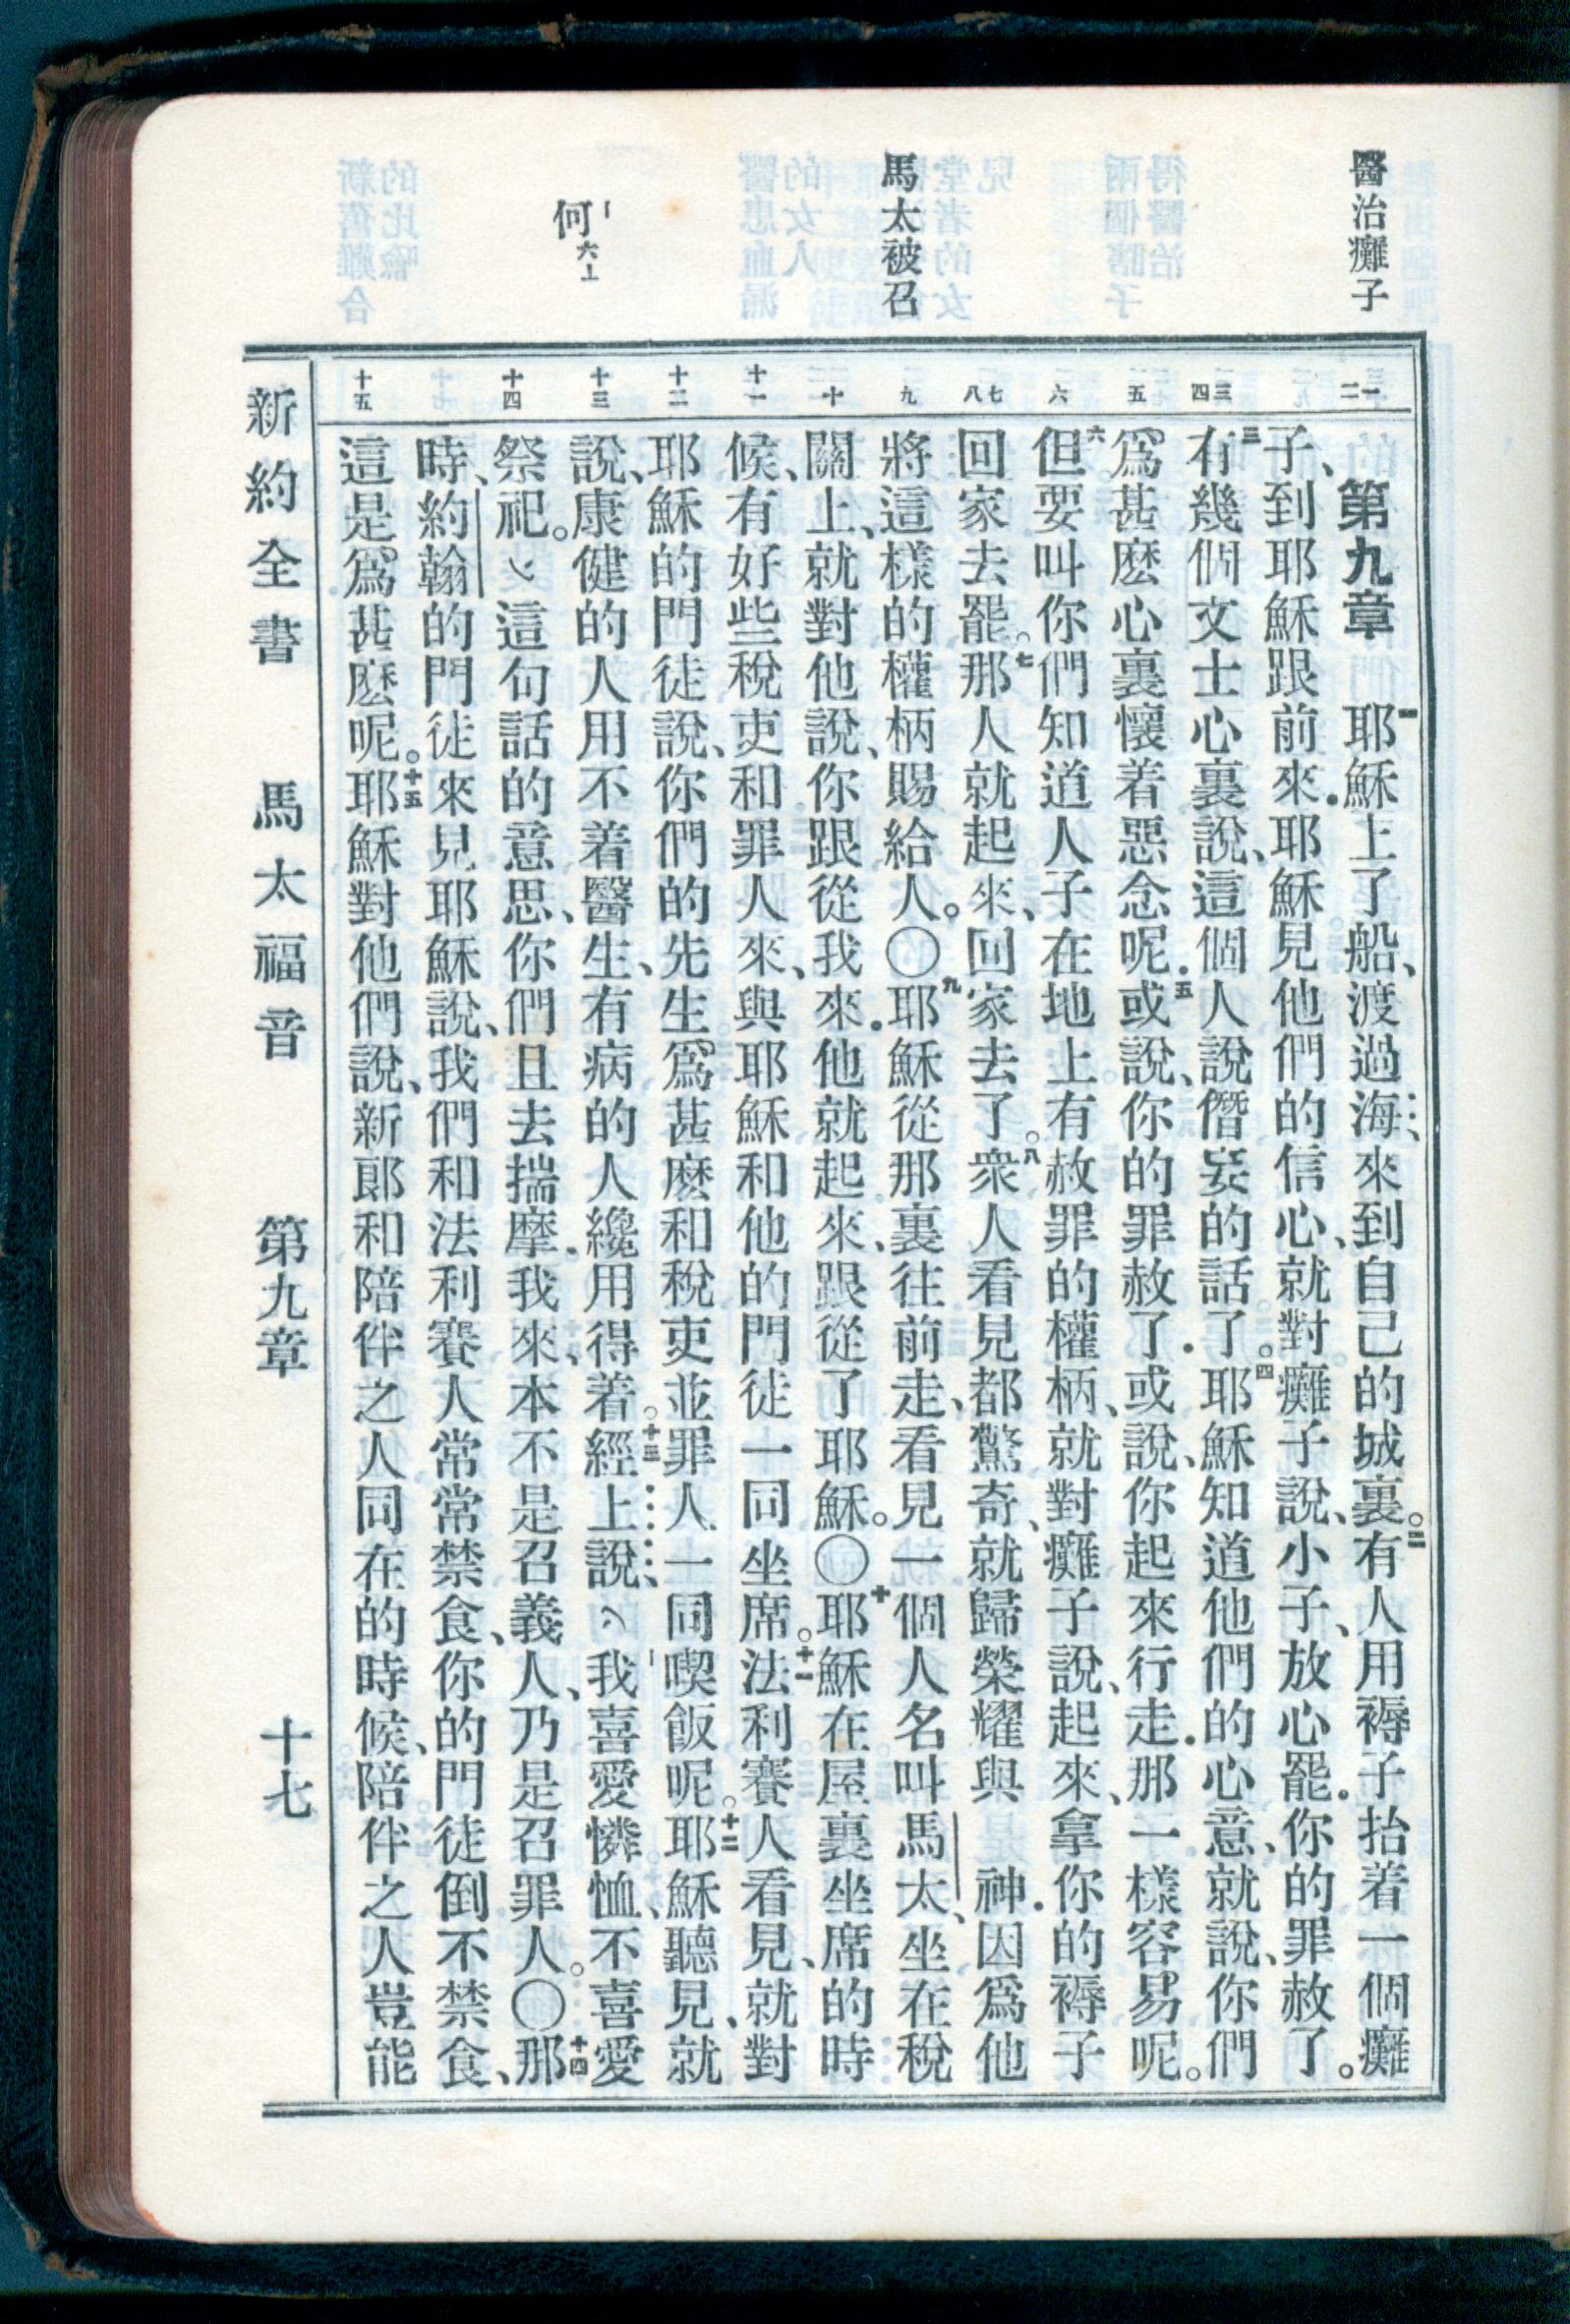 醫治癱子
馬太被召
何六6
一二
三四
五
六
七八
九
十
十一
十二
十三
十四
十五
第九章 一耶穌上了船、渡過海、來到自己的城裏。二有人用褥子抬着一個癱
子、到耶穌跟前來．耶穌見他們的信心、就對癱子說、小子、放心罷．你的罪赦了。
三有幾個文士心裏說、這個人說僭妄的話了。四耶穌知道他們的心意、就說、你們
爲甚麽心裏懷着惡念呢．五或說、你的罪赦了．或說、你起來行走．那一樣容易呢。
六但要叫你們知道人子在地上有赦罪的權柄、就對癱子說、起來、拿你的褥子
回家去罷。七那人就起來、回家去了。八衆人看見都驚奇、就歸榮耀與 神．因爲他
將這樣的權柄賜給人。〇九耶穌從那裏往前走、看見一個人名叫馬太、坐在稅
關上、就對他說、你跟從我來．他就起來、跟從了耶穌。〇十耶穌在屋裏坐席的時
候、有好些稅吏和罪人來、與耶穌和他的門徒一同坐席。十一法利賽人看見、就對
耶穌的門徒說、你們的先生爲甚麽和稅吏並罪人一同喫飯呢。十二耶穌聽見、就
說、康健的人用不着醫生、有病的人纔用得着。十三經上說、我喜愛憐恤、不喜愛
祭祀。這句話的意思、你們且去揣摩．我來、本不是召義人、乃是召罪人。〇十四那
時、約翰的門徒來見耶穌說、我們和法利賽人常常禁食、你的門徒倒不禁食、
這是爲甚麽呢。十五耶穌對他們說、新郎和陪伴之人同在的時候、陪伴之人豈能
新約全書 馬太福音 第九章 十七